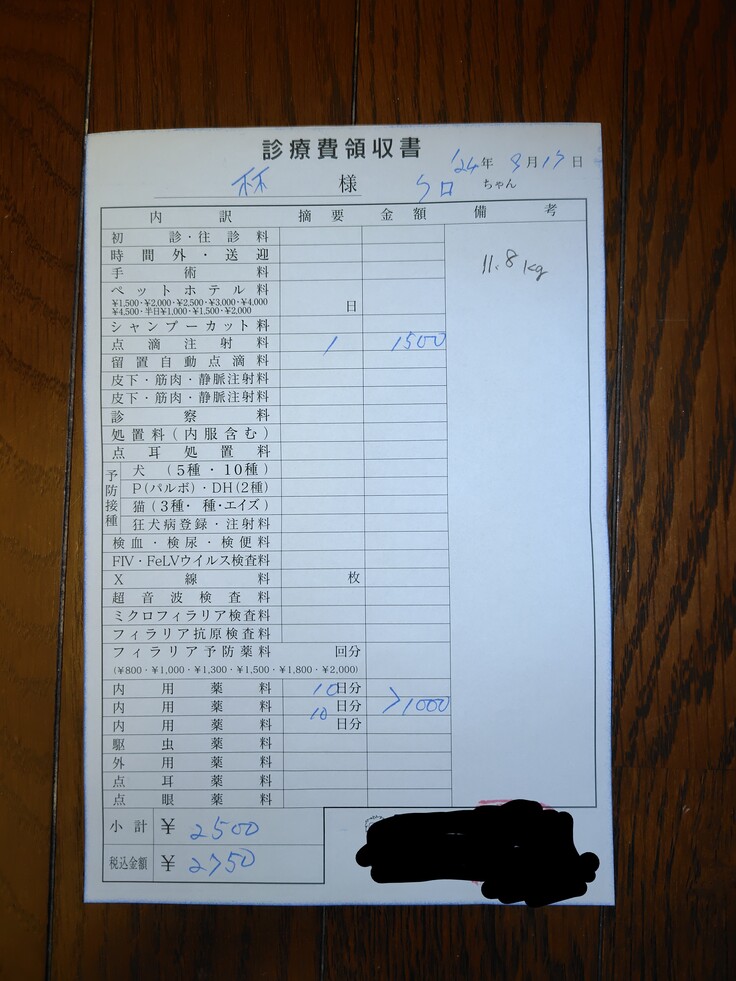 診療費領収書
'24年 9月17日
林 様 クロ ちゃん
内訳 摘要 金額 備考
初診・往診料
11.8kg
時間外・送迎
手術料
ペットホテル料
¥1,500・¥2,000・¥2,500・¥3,000・¥4,000
日
¥4,500・半日¥1,000・¥1,500・¥2,000
シャンプーカット料
点滴注射料 1 1500
留置自動点滴料
皮下・筋肉・静脈注射料
皮下・筋肉・静脈注射料
診察料
処置料(内服含む)
点耳処置料
予防接種
犬 (5種・10種)
P(パルボ)・DH(2種)
猫(3種・ 種・エイズ)
狂犬病登録・注射料
検血・検尿・検便料
FIV・FeLVウイルス検査料
X線料 枚
超音波検査料
ミクロフィラリア検査料
フィラリア抗原検査料
フィラリア予防薬料 回分
(¥800・¥1,000・¥1,300・¥1,500・¥1,800・¥2,000)
内用薬料 10日分
内用薬料 10日分 >1000
内用薬料 日分
駆虫薬料
外用薬料
点耳薬料
点眼薬料
小計 ¥ 2500
税込金額 ¥ 2750